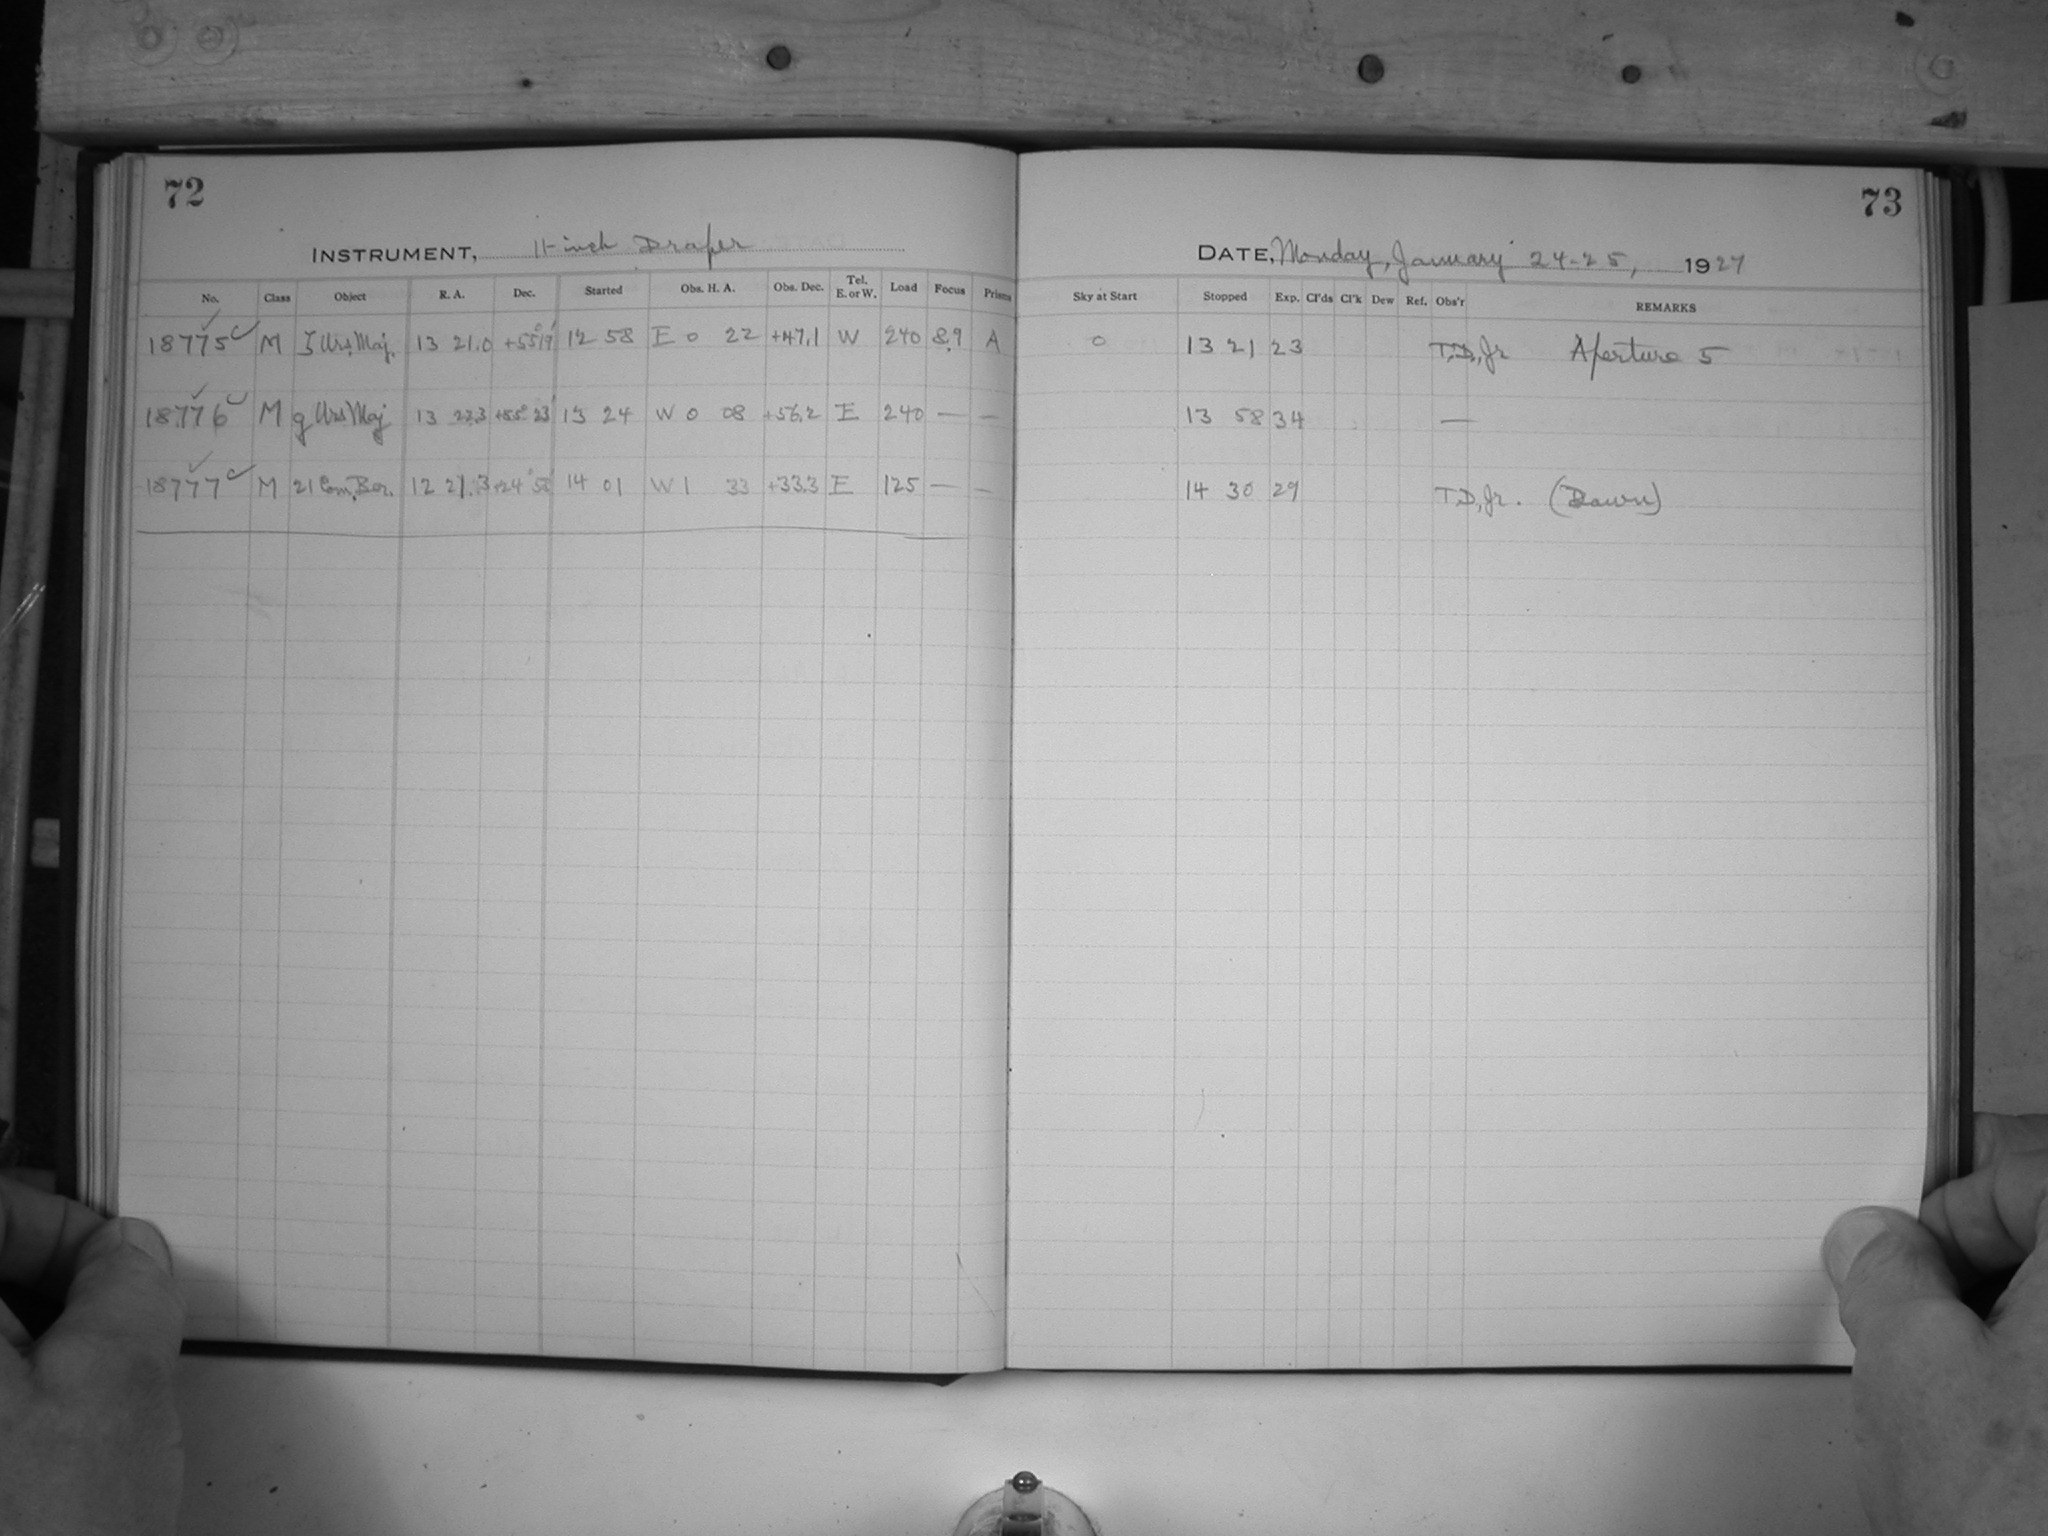 72
73
INSTRUMENT, 11-inch Draper
DATE, Monday, January 24-25, 1927
No. Class Object R. A. Dec. Started Obs. H. A. Obs. Dec. Tel. E. or W. Load Focus Prisms Sky at Start Stopped Exp. Cl'ds Cl'k Dew Ref. Obs'r REMARKS
18775 M ζ Urs. Maj. 13 21.0 +55° 12 58 E 0 22 +47.1 W 240 8.9 A 0 13 21 23 T.D., Jr Aperture 5
18776 M g Urs Maj 13 22.3 +55° 23' 13 24 W 0 08 +56.2 E 240 — — 13 58 34 —
18777 M 21 Com. Ber. 12 21.3 +24° 58' 14 01 W 1 33 +33.3 E 125 — — 14 30 29 T.D., Jr. (Dawn)